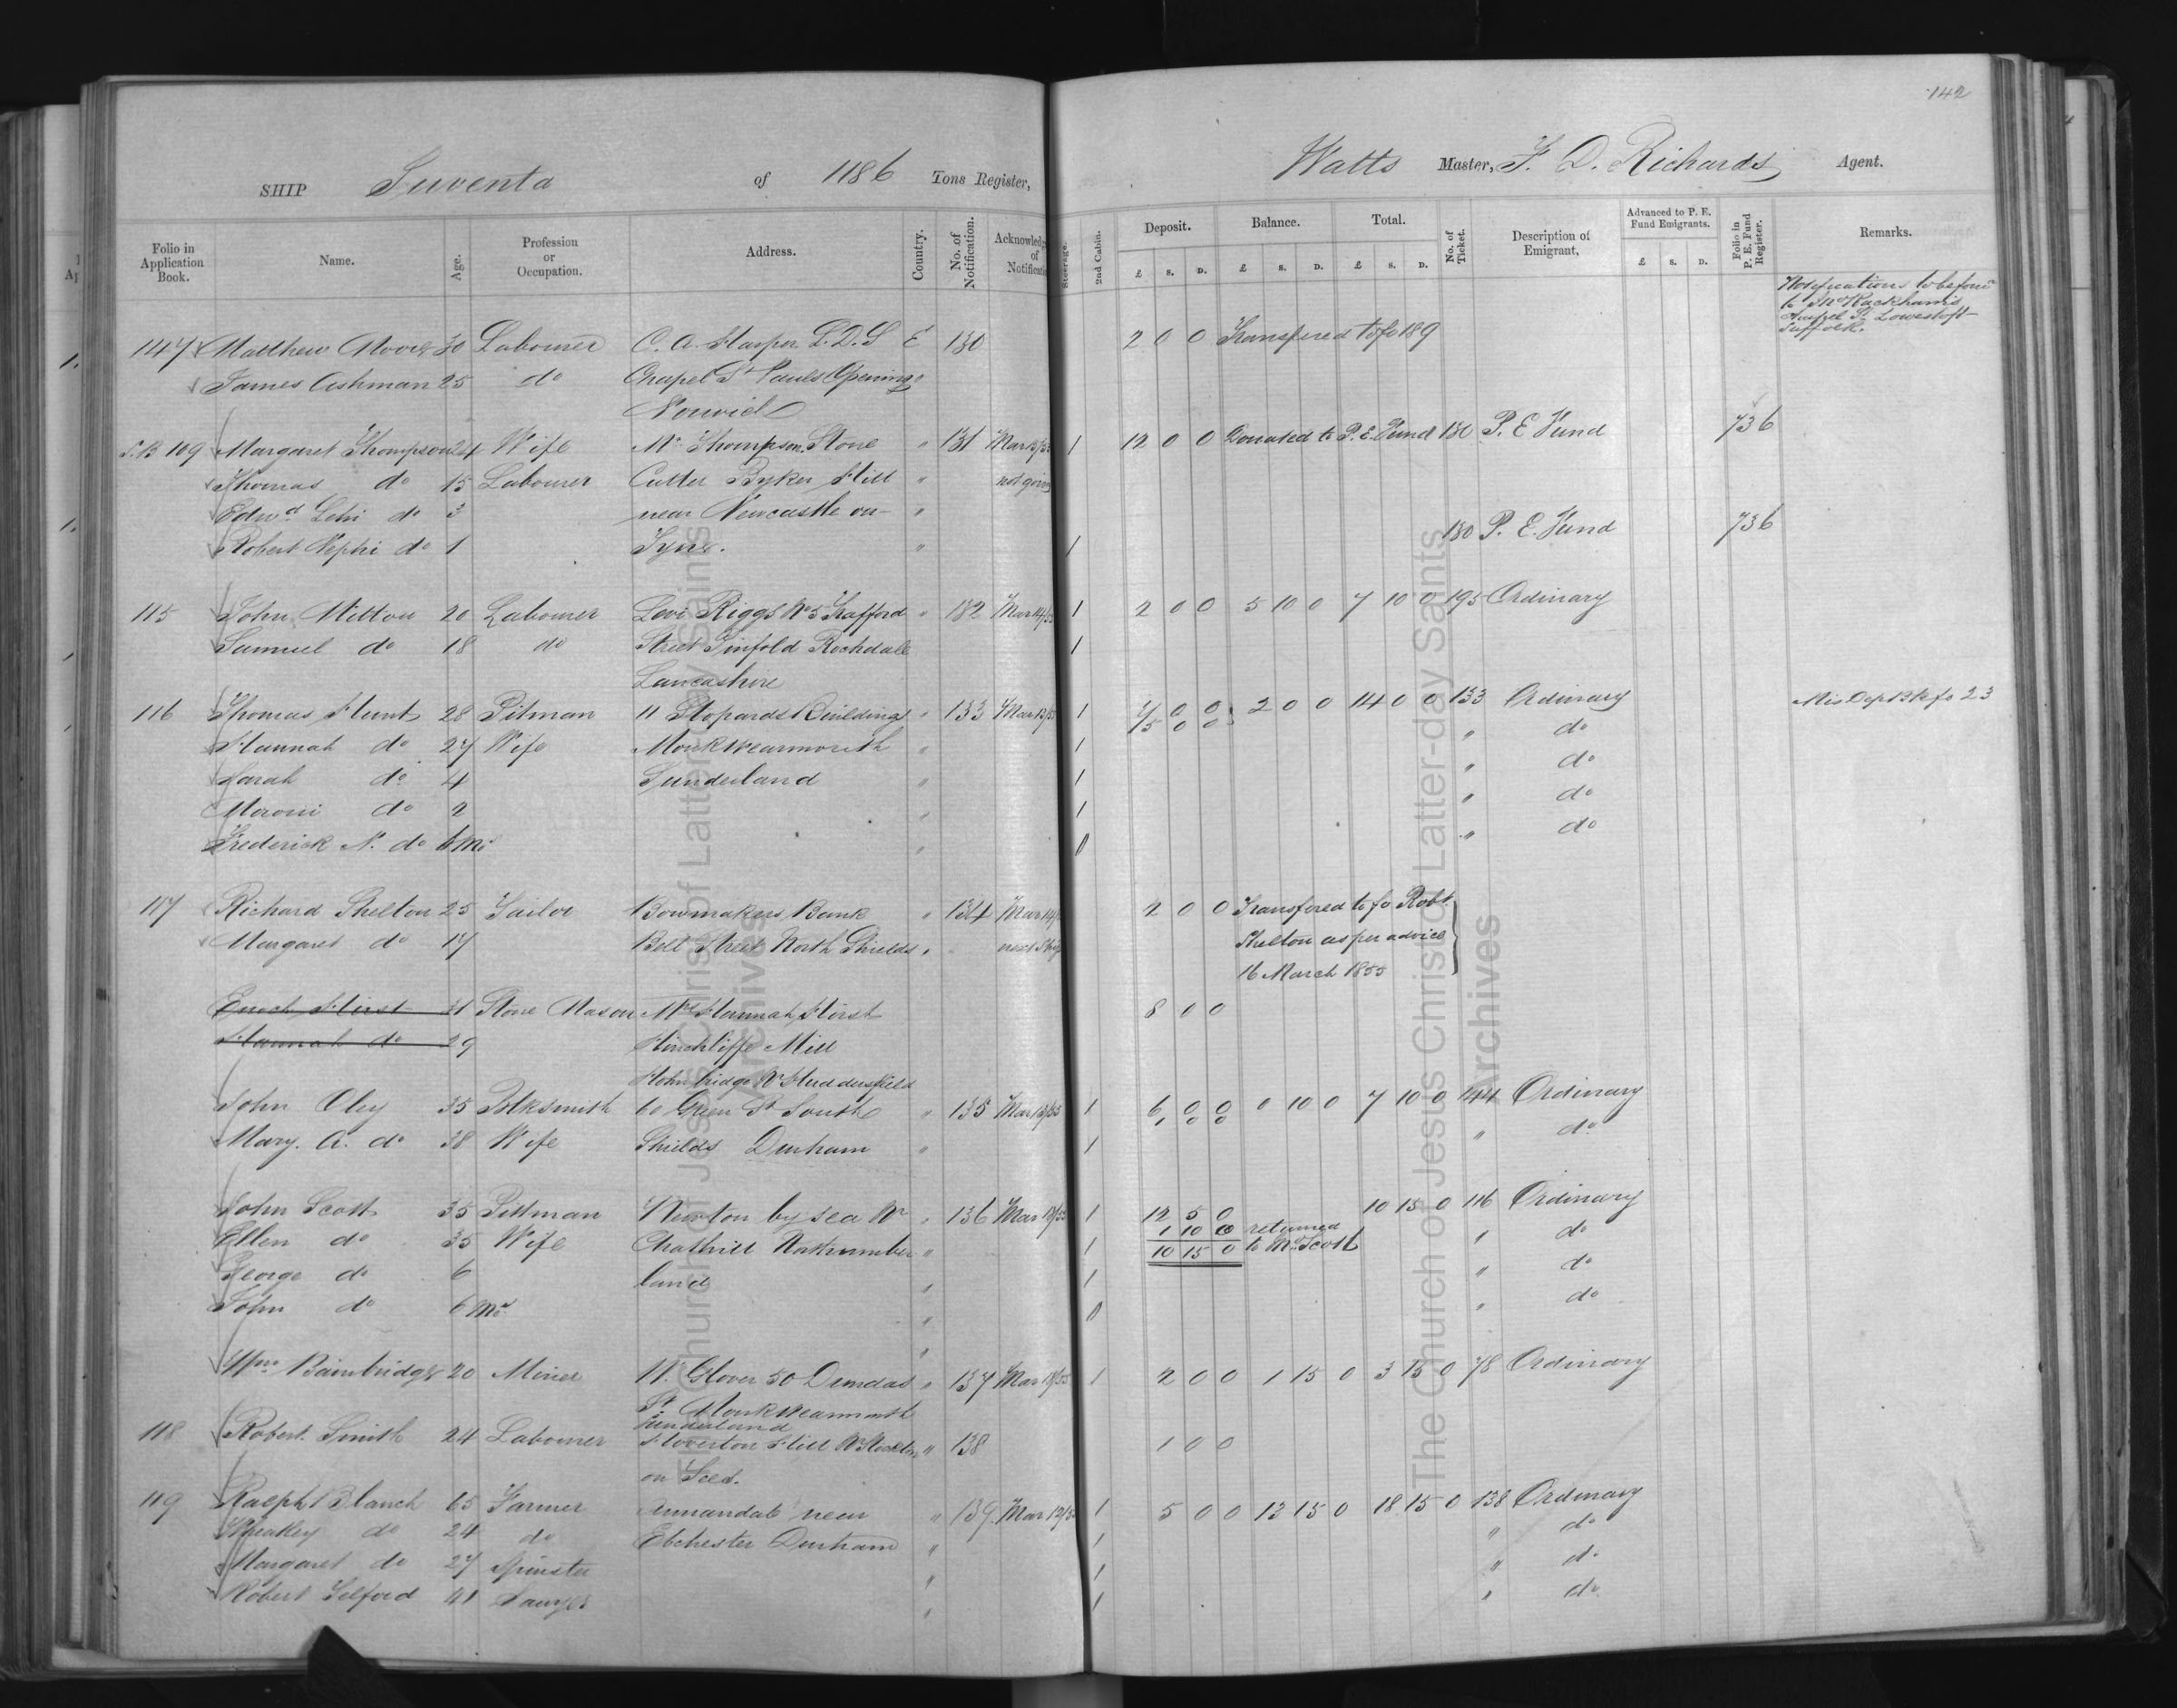 142
SHIP Juventa of 1186 Tons Register, Watts Master, F. D. Richards Agent.
Folio in Application Book. Name. Age. Profession or Occupation. Address. Country. No. of Notification. Acknowledg of Notificatio Steerage. 2nd Cabin. Deposit. Balance. Total. No. of Ticket. Description of Emigrant, Advanced to P. E. Fund Emigrants. Folio in P. E. Fund Register. Remarks.
£ S. D. £ S. D. £ S. D. £ S. D.
Notifications to be
to Rackham's
St Lowestoft
Suffolk.
147 Matthew Moore 30 Labourer C. A. Harper L.D.S E 130 2 0 0 Transfered to fo 189
James Ashman 25 do Chapel St Pauls Opening "
Norwich
S.B 109 Margaret Thompson 24 Wife Mr Thompson Stone " 131 Mar 1 12 0 0 Donated to P.E. Fund 180 P. E Fund 736
Thomas do 15 Labourer Cutter Byker Hill " not going
Edwd Lehi do 3 near Newcastle on "
Robert Nephi do 1 Tyne. " 1 180 P. E. Fund 736
115 John Mitton 20 Labourer Levi Riggs No 5 Trafford " 132 Mar 14/55 1 2 0 0 5 10 0 7 10 0 195 Ordinary
Samuel do 18 do Street Pinfold Rochdale 1
Lancashire
116 Thomas Hunt 28 Pitman 11 Stopards Buildings " 133 Mar 13/55 1 0 0 2 0 0 14 0 0 133 Ordinary Mis Dep Bk fo 23
5 0 0
Hannah do 27 Wife Monkwearmouth " 1 " do
Sarah do 4 Sunderland " 1 " do
Moroni do 2 " 1 " do
Frederick N. do 6 Mo " " do
117 Richard Shelton 25 Sailor Bowmakers Bank " 134 Mar 14 2 0 0 Transfered to fo Robt
Margaret do 17 Bell Street North Shields " next Ship Shelton as per advice
16 March 1855
Enoch Hirst 31 Stone Mason Mrs Hannah Hirst 8 0 0
Hannah do 29 Hinchliffe Mill
Holmbridge Nr Huddersfield
John Oley 35 Blksmith 60 Green St South " 135 Mar 13/55 1 6 0 0 0 10 0 7 10 0 144 Ordinary
1 0 0
Mary. A. do 38 Wife Shields Durham " 1 " do
John Scott 35 Pittman Newton by Sea Nr " 136 Mar 13/55 1 12 5 0 10 15 0 116 Ordinary
1 10 0 returned
Ellen do 35 Wife Chathill Northumber " 1 10 15 0 to Mr Scott " do
George do 6 land " 1 " do
John do 6 Mo " " do
Wm Bainbridge 20 Miner W. Glover 50 Dundas " 137 Mar 13/55 1 2 0 0 1 15 0 3 15 0 78 Ordinary
St Monkwearmouth
Sunderland
118 Robert Smith 24 Labourer Hill Nr Stockton " 138 1 0 0
on Tees.
119 Ralph Blanch 65 Farmer Annandale near " 139 Mar 12/55 1 5 0 0 13 15 0 18 15 0 138 Ordinary
do 24 do Ebchester Durham " 1 " do
Margaret do 27 Spinster " 1 " do
Robert Telford 41 Sawyer " 1 " do
The Church of Jesus Christ of Latter-day Saints
Archives
The Church of Jesus Christ of Latter-day Saints
Archives